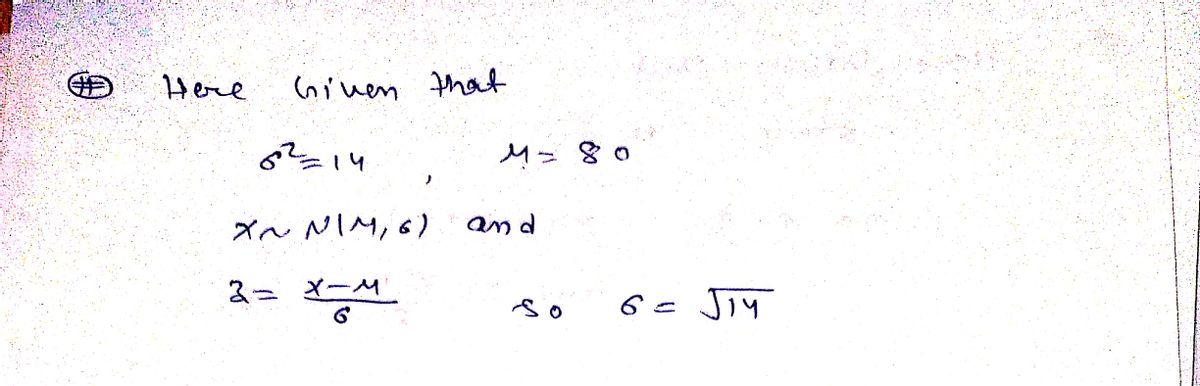 # Here Given that
σ²=14 , μ= 80
x~ N(μ, σ) and
z= x-μ/σ so σ= √14